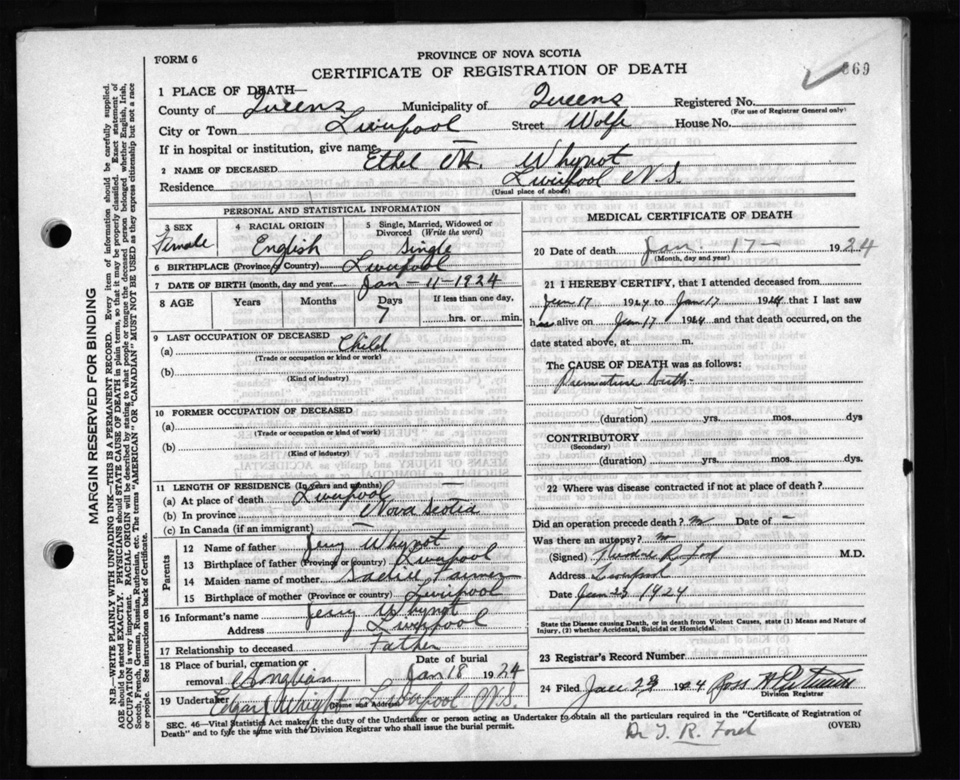 FORM 6
PROVINCE OF NOVA SCOTIA
CERTIFICATE OF REGISTRATION OF DEATH
869
1 PLACE OF DEATH—
County of Queens Municipality of Queens Registered No.
(For use of Registrar General only)
City or Town Liverpool Street Wolfe House No.
If in hospital or institution, give name —
2 NAME OF DECEASED Ethel M. Whynot
Residence Liverpool N.S.
(Usual place of abode)
PERSONAL AND STATISTICAL INFORMATION
3 SEX Female
4 RACIAL ORIGIN English
5 Single, Married, Widowed or Divorced (Write the word) Single
6 BIRTHPLACE (Province or Country) Liverpool
7 DATE OF BIRTH (month, day and year) Jan - 11 - 1924
8 AGE Years Months Days 7 If less than one day, hrs. or min.
9 LAST OCCUPATION OF DECEASED
(a) Child
(Trade or occupation or kind of work)
(b)
(Kind of industry)
10 FORMER OCCUPATION OF DECEASED
(a) —
(Trade or occupation or kind of work)
(b)
(Kind of industry)
11 LENGTH OF RESIDENCE (In years and months)
(a) At place of death Liverpool —
(b) In province Nova Scotia
(c) In Canada (if an immigrant) —
Parents
12 Name of father Jerry Whynot
13 Birthplace of father (Province or country) Liverpool
14 Maiden name of mother
15 Birthplace of mother (Province or country) Liverpool
16 Informant's name Jerry Whynot
Address Liverpool
17 Relationship to deceased Father
18 Place of burial, cremation or removal Anglican Date of burial Jan 18 1924
19 Undertaker Edgar Wright Liverpool N.S.
Name and Address
MEDICAL CERTIFICATE OF DEATH
20 Date of death Jan 17 — 1924
(Month, day and year)
21 I HEREBY CERTIFY, that I attended deceased from
Jan 17 1924 to Jan 17 1924 that I last saw
h alive on Jan 17 1924 and that death occurred, on the
date stated above, at m.
The CAUSE OF DEATH was as follows:
Premature birth
(duration) yrs. mos. dys
CONTRIBUTORY
(Secondary)
(duration) yrs. mos. dys.
22 Where was disease contracted if not at place of death?
Did an operation precede death? no Date of —
Was there an autopsy? no
(Signed) Theodore R. Ford M.D.
Address Liverpool
Date Jan 23 1924
State the Disease causing Death, or in death from Violent Causes, state (1) Means and Nature of Injury, (2) whether Accidental, Suicidal or Homicidal.
23 Registrar's Record Number
24 Filed, Jan 23 1924 Ross H
Division Registrar
SEC. 46—Vital Statistics Act makes it the duty of the Undertaker or person acting as Undertaker to obtain all the particulars required in the "Certificate of Registration of
Death" and to file the same with the Division Registrar who shall issue the burial permit. (OVER)
Dr T. R. Ford
MARGIN RESERVED FOR BINDING
N.B.—WRITE PLAINLY WITH UNFADING INK—THIS IS A PERMANENT RECORD. Every item of information should be carefully supplied.
AGE should be stated EXACTLY. PHYSICIANS should STATE CAUSE OF DEATH in plain terms, so that it may be properly classified. Exact statement of
OCCUPATION is very important. RACIAL ORIGIN will be described by stating to what people or tongue the deceased person belonged whether English, Irish,
Scotch, French, German, Russian, Ruthenian, etc. The terms "AMERICAN" OR "CANADIAN" MUST NOT BE USED as they express citizenship but not a race
or people. See instructions on back of Certificate.